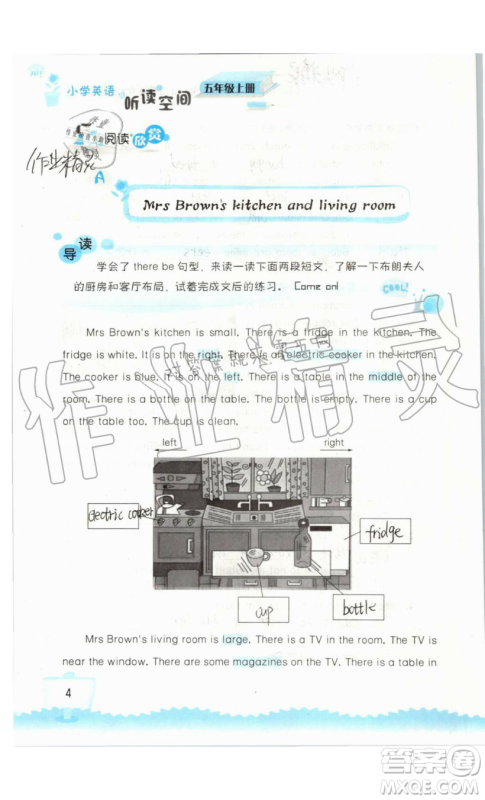 小学英语
听读空间
五年级上册
阅读欣赏
作业精灵
A
Mrs Brown's kitchen and living room
导读
学会了 there be 句型，来读一读下面两段短文，了解一下布朗夫人
的厨房和客厅布局，试着完成文后的练习。 Come on!
COOL!
Mrs Brown's kitchen is small. There is a fridge in the kitchen. The
fridge is white. It is on the right. There is an electric cooker in the kitchen.
The cooker is blue. It is on the left. There is a table in the middle of the
room. There is a bottle on the table. The bottle is empty. There is a cup
on the table too. The cup is clean.
作业精灵
left
right
electric cooker
fridge
cup
bottle
Mrs Brown's living room is large. There is a TV in the room. The TV is
near the window. There are some magazines on the TV. There is a table in
4
答案圈
MXQE.COM